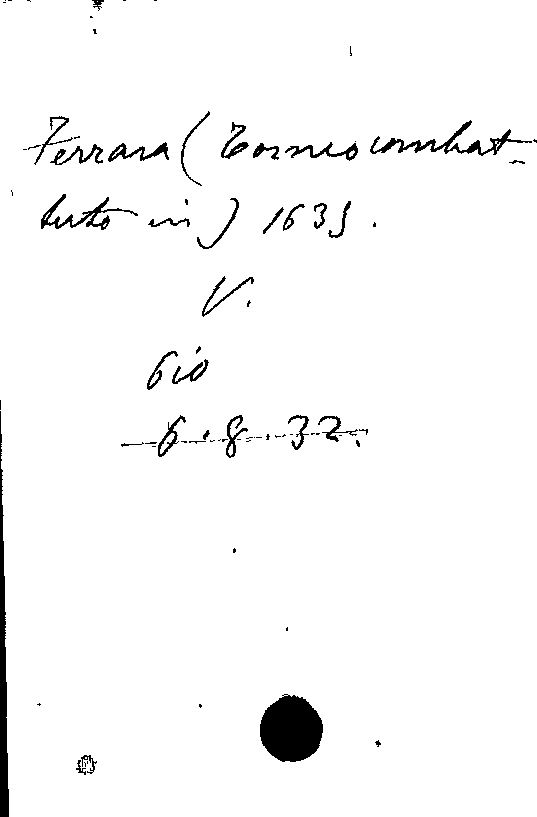 Ferrara (Torneo combat-
tuto in) 1635.
V.
Gio
6.8.32.